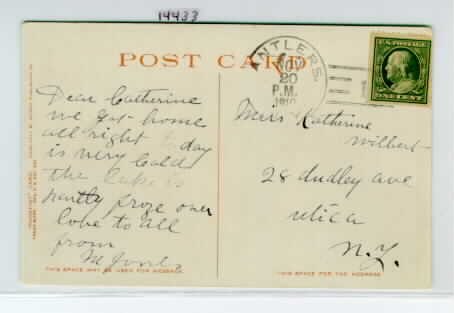 14433
POST CARD
ANTLERS.
NOV
20
P.M.
1910
U.S. POSTAGE
ONE CENT
Dear Catherine
we got home
all right to day
is very Cold
the lake is
partly froze over
love to all
from
M Jones
Miss Katherine
Wilbert
28 dudley ave
utica
N.Y.
THIS SPACE MAY BE USED FOR MESSAGE.
THIS SPACE IS FOR THE ADDRESS.